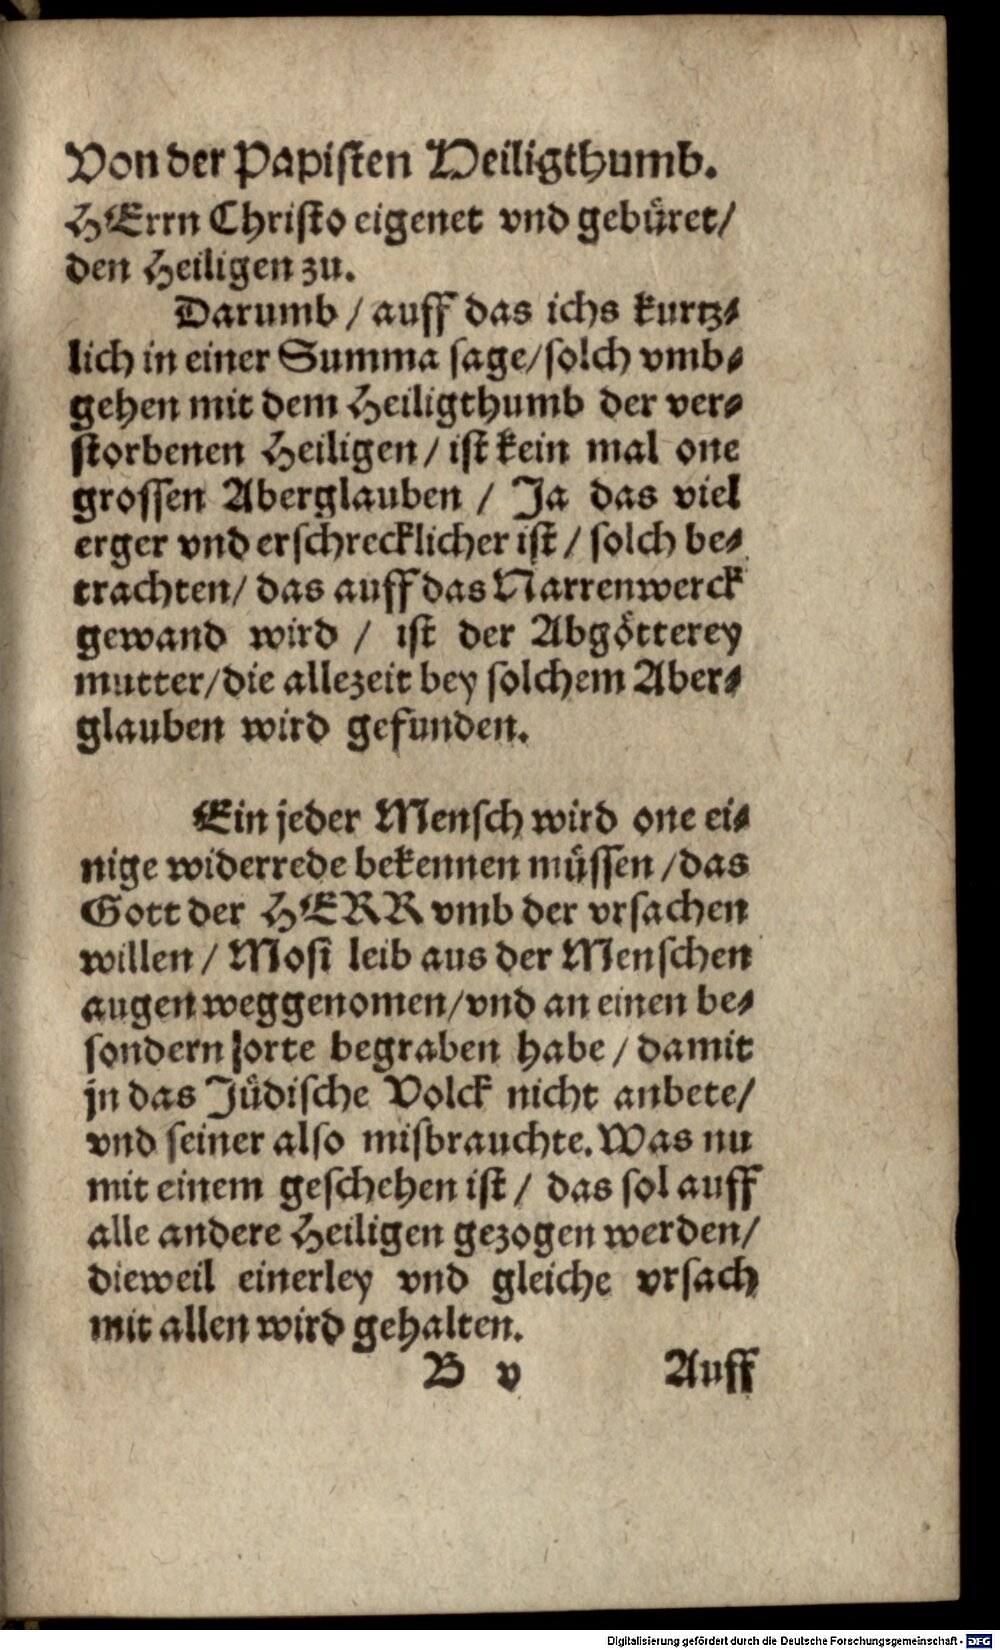 Von der Papisten Heiligthumb.
HErrn Christo eigenet vnd gebüret/
den Heiligen zu.
Darumb / auff das ichs kurtz-
lich in einer Summa sage/solch vmb-
gehen mit dem Heiligthumb der ver-
storbenen Heiligen / ist kein mal one
grossen Aberglauben / Ja das viel
erger vnd erschrecklicher ist / solch be-
trachten/ das auff das Narrenwerck
gewand wird / ist der Abgötterey
mutter/die allezeit bey solchem Aber-
glauben wird gefunden.
Ein jeder Mensch wird one ei-
nige widerrede bekennen müssen /das
Gott der HERR vmb der vrsachen
willen / Mosi leib aus der Menschen
augen weggenomen/vnd an einen be-
sondern orte begraben habe / damit
jn das Jüdische Volck nicht anbete/
vnd seiner also misbrauchte. Was nu
mit einem geschehen ist / das sol auff
alle andere Heiligen gezogen werden/
dieweil einerley vnd gleiche vrsach
mit allen wird gehalten.
B v Auff
Digitalisierung gefördert durch die Deutsche Forschungsgemeinschaft - DFG